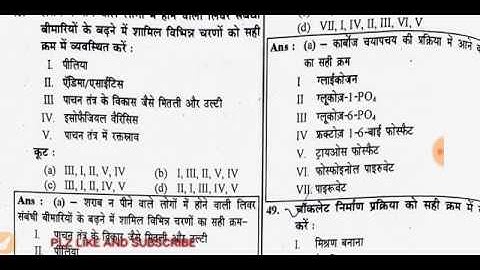 बीमारियों के बढ़ने में शामिल विभिन्न चरणों को सही
क्रम में व्यवस्थित करें :
I. पीलिया
II. ऍडिमा/एसाईटिस
III पाचन तंत्र के विकास जैसे मितली और उल्टी
IV. इसोफैजियल वैरिसिस
V. पाचन तंत्र में रक्तस्राव
कूट :
(a) III, I, II, V, IV (b) I, III, II, V, IV
(c) III, I, II, IV, V (d) II, I, III, IV, V
Ans : (a) - शराब न पीने वाले लोगों में होने वाली लिवर
संबंधी बीमारियों के बढ़ने में शामिल विभिन्न चरणों का सही क्रम-
I. पाचन तंत्र के विकार जैसे मितली और उल्टी
II. पीलिया
PLZ LIKE AND SUBSCRIBE
(d) VII, I, IV, II, III, VI, V
Ans : (a) - कार्बोज चयापचय की प्रक्रिया में आने
का सही क्रम
I ग्लाईकोजन
II ग्लूकोज़-1-PO₄
III ग्लूकोज़-6-PO₄
IV फ्रक्टोज़ 1-6-बाई फोस्फेट
V. ट्रायओस फोस्फेट
VI. फोस्फोइनोल पाइरुवेट
VII. पाइरूवेट
49. चॉकलेट निर्माण प्रक्रिया को सही क्रम में
करें :
I. मिश्रण बनाना